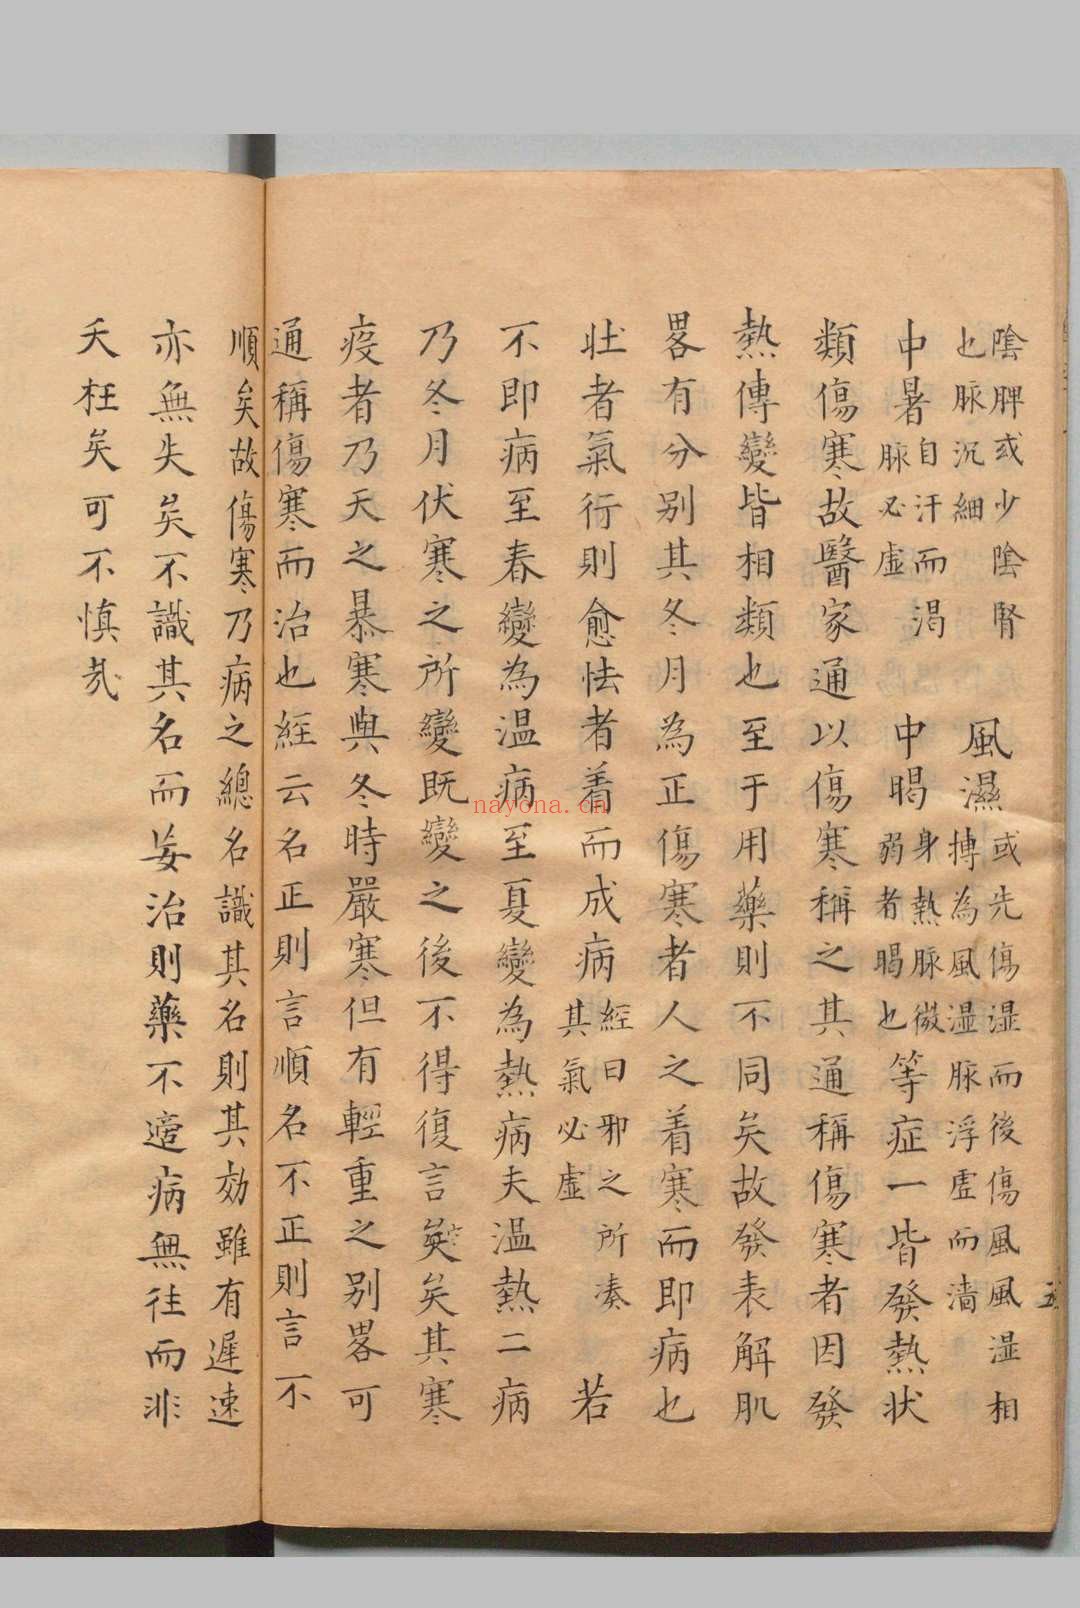 陰脾或少陰腎也脉沉細 風濕或先傷湿而後傷風風湿相搏為風湿脉浮虚而濇
中暑自汗而渴脉必虚 中暍身熱脉微弱者暍也等症一皆發熱状
類傷寒故醫家通以傷寒稱之其通稱傷寒者因發
熱傳變皆相類也至于用藥則不同矣故發表解肌
畧有分别其冬月為正傷寒者人之着寒而即病也
壮者氣行則愈怯者着而成病經曰邪之所湊其氣必虚 若
不即病至春變為温病至夏變為熱病夫温熱二病
乃冬月伏寒之所變既變之後不得復言矣其寒
疫者乃天之暴寒與冬時嚴寒但有輕重之别畧可
通稱傷寒而治也經云名正則言順名不正則言不
順矣故傷寒乃病之總名識其名則其効雖有遲速
亦無失矣不識其名而妄治則藥不適病無往而非
夭枉矣可不慎哉
五
nayona.cn